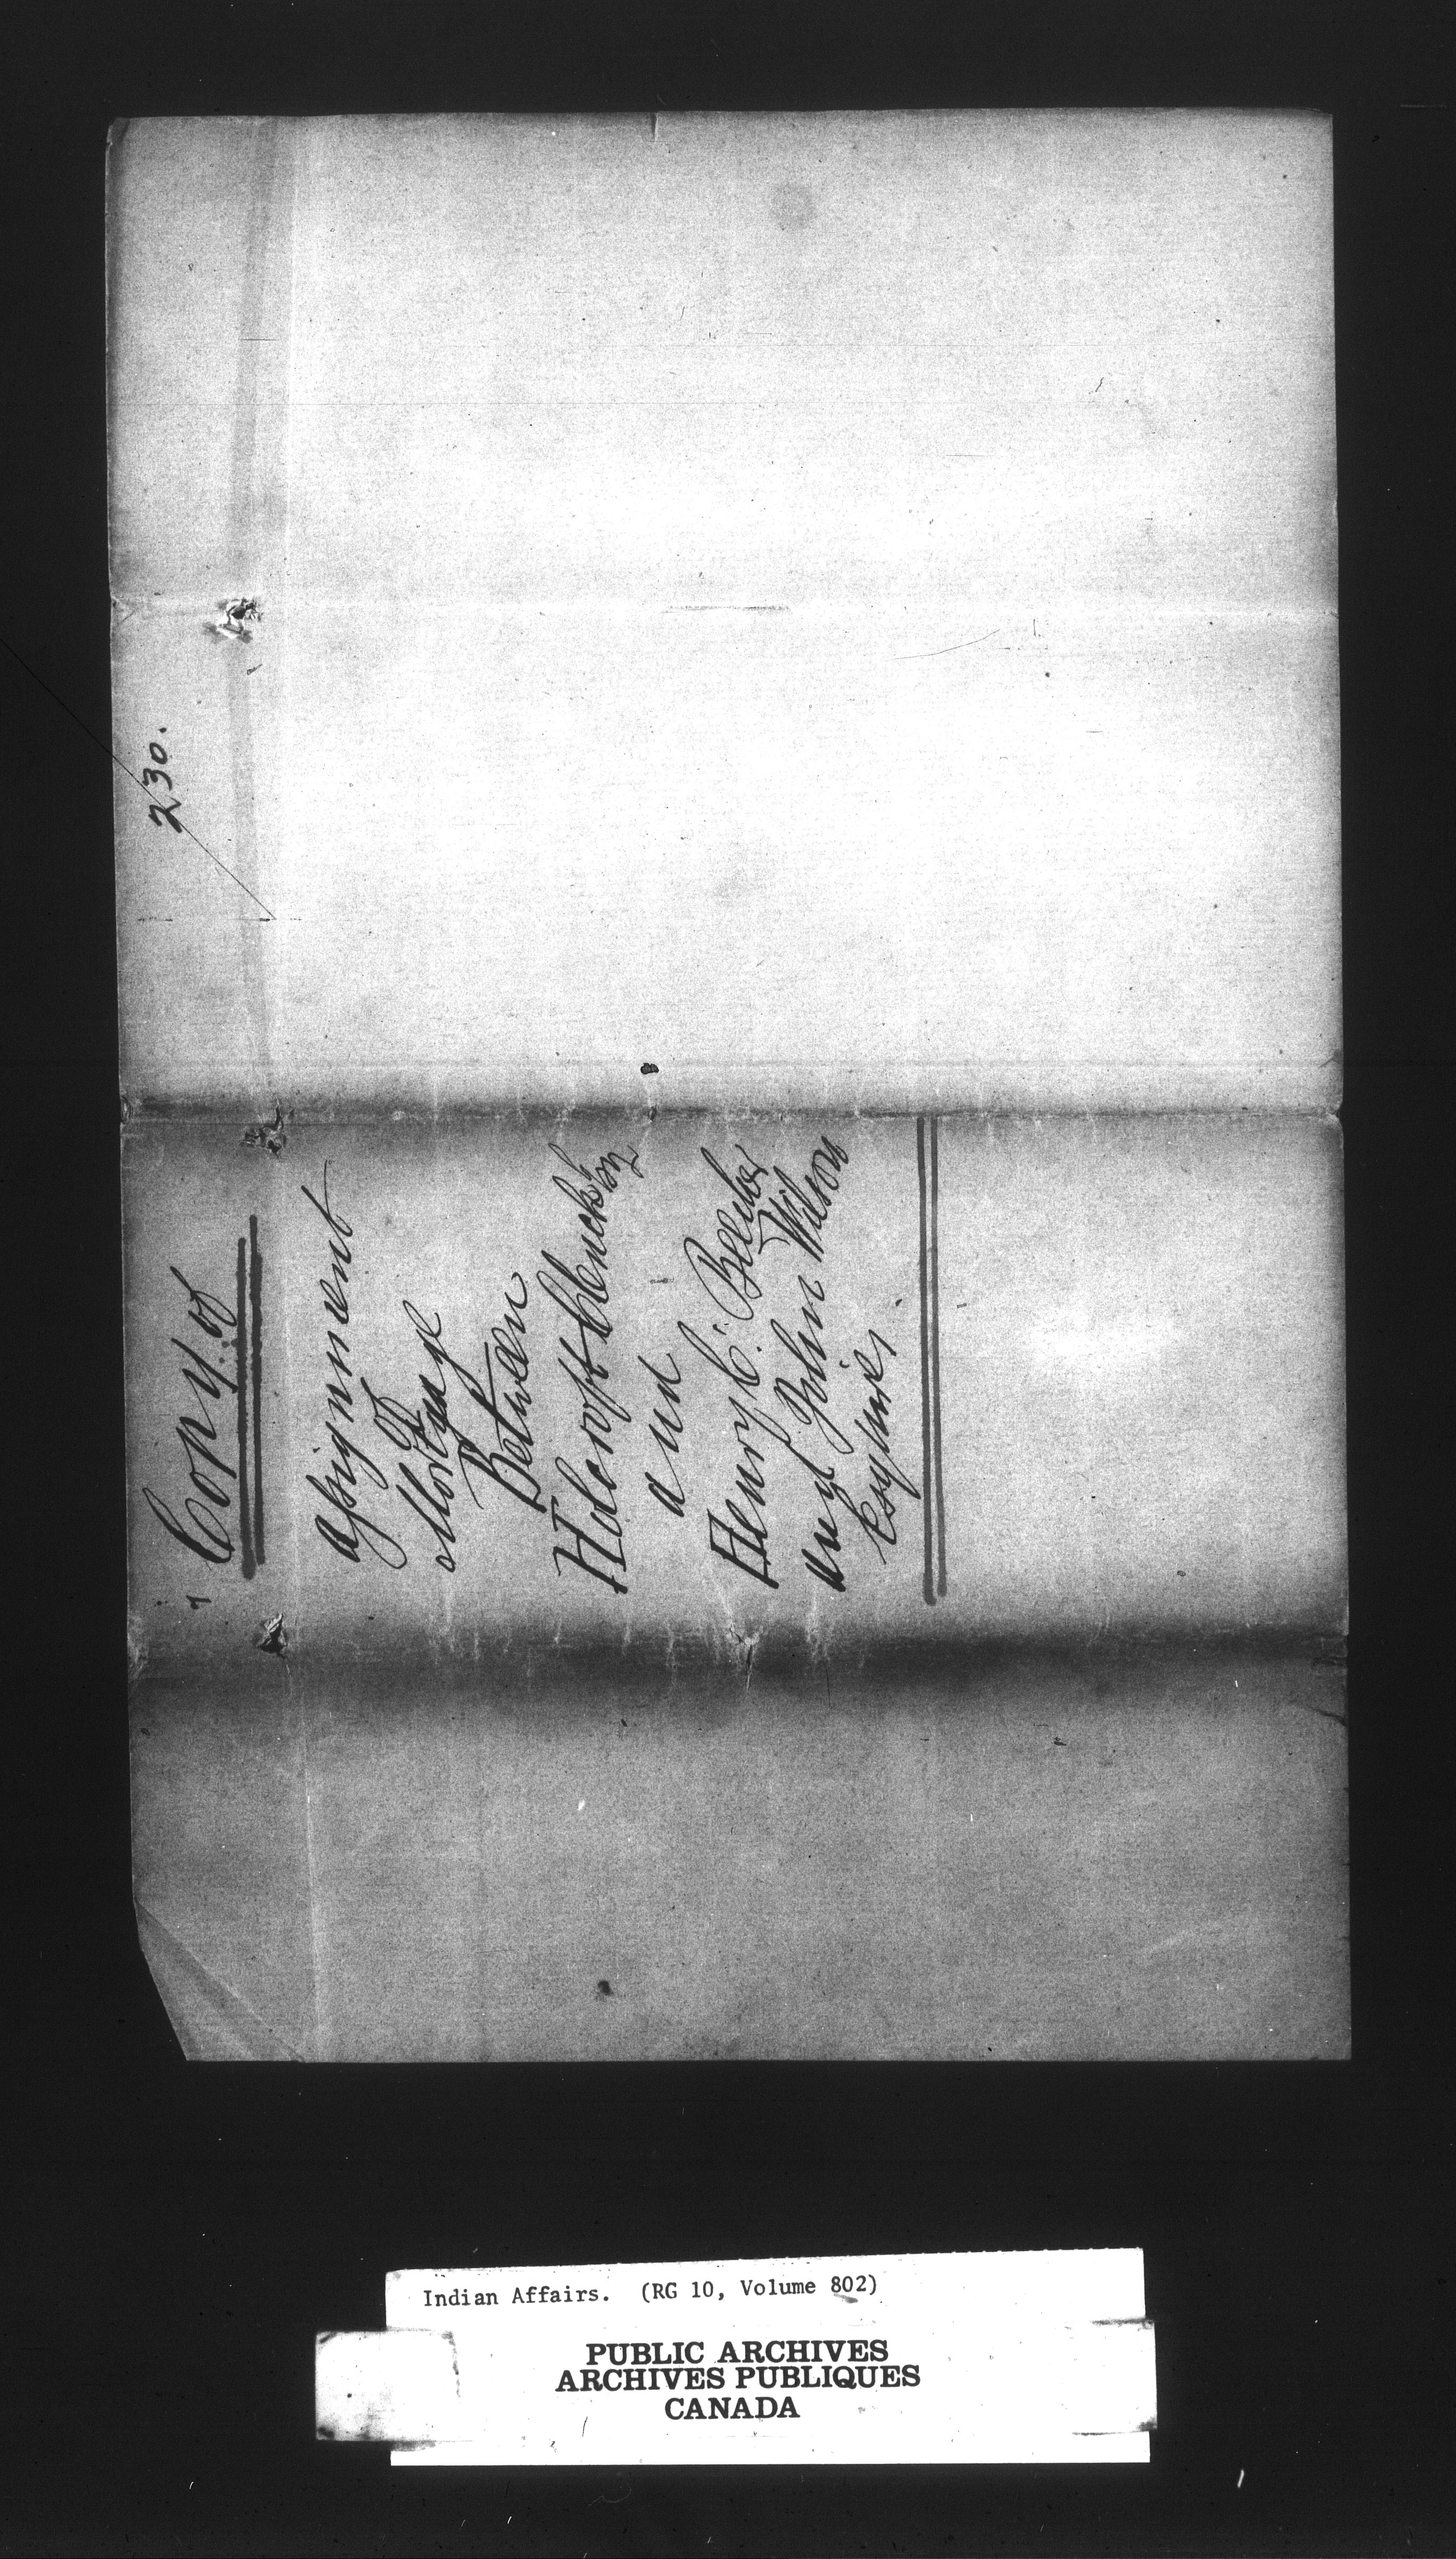 230.
Copy of
Assignment
of
Mortgage
Between
Holcroft Clench
and
Henry C. Beecher
and John Wilson
Esquires
Indian Affairs. (RG 10, Volume 802)
PUBLIC ARCHIVES
ARCHIVES PUBLIQUES
CANADA